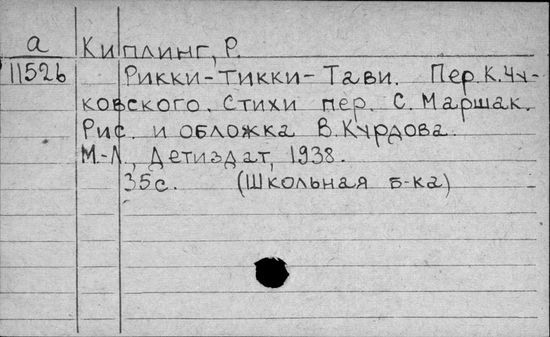 а Киплинг, Р.
11526 Рикки-Тикки-Тави. Пер. К. Чу-
ковского. Стихи пер. С. Маршак.
Рис. и обложка В. Курдова.
М-Л., Детиздат, 1938.
35с. (Школьная б-ка)